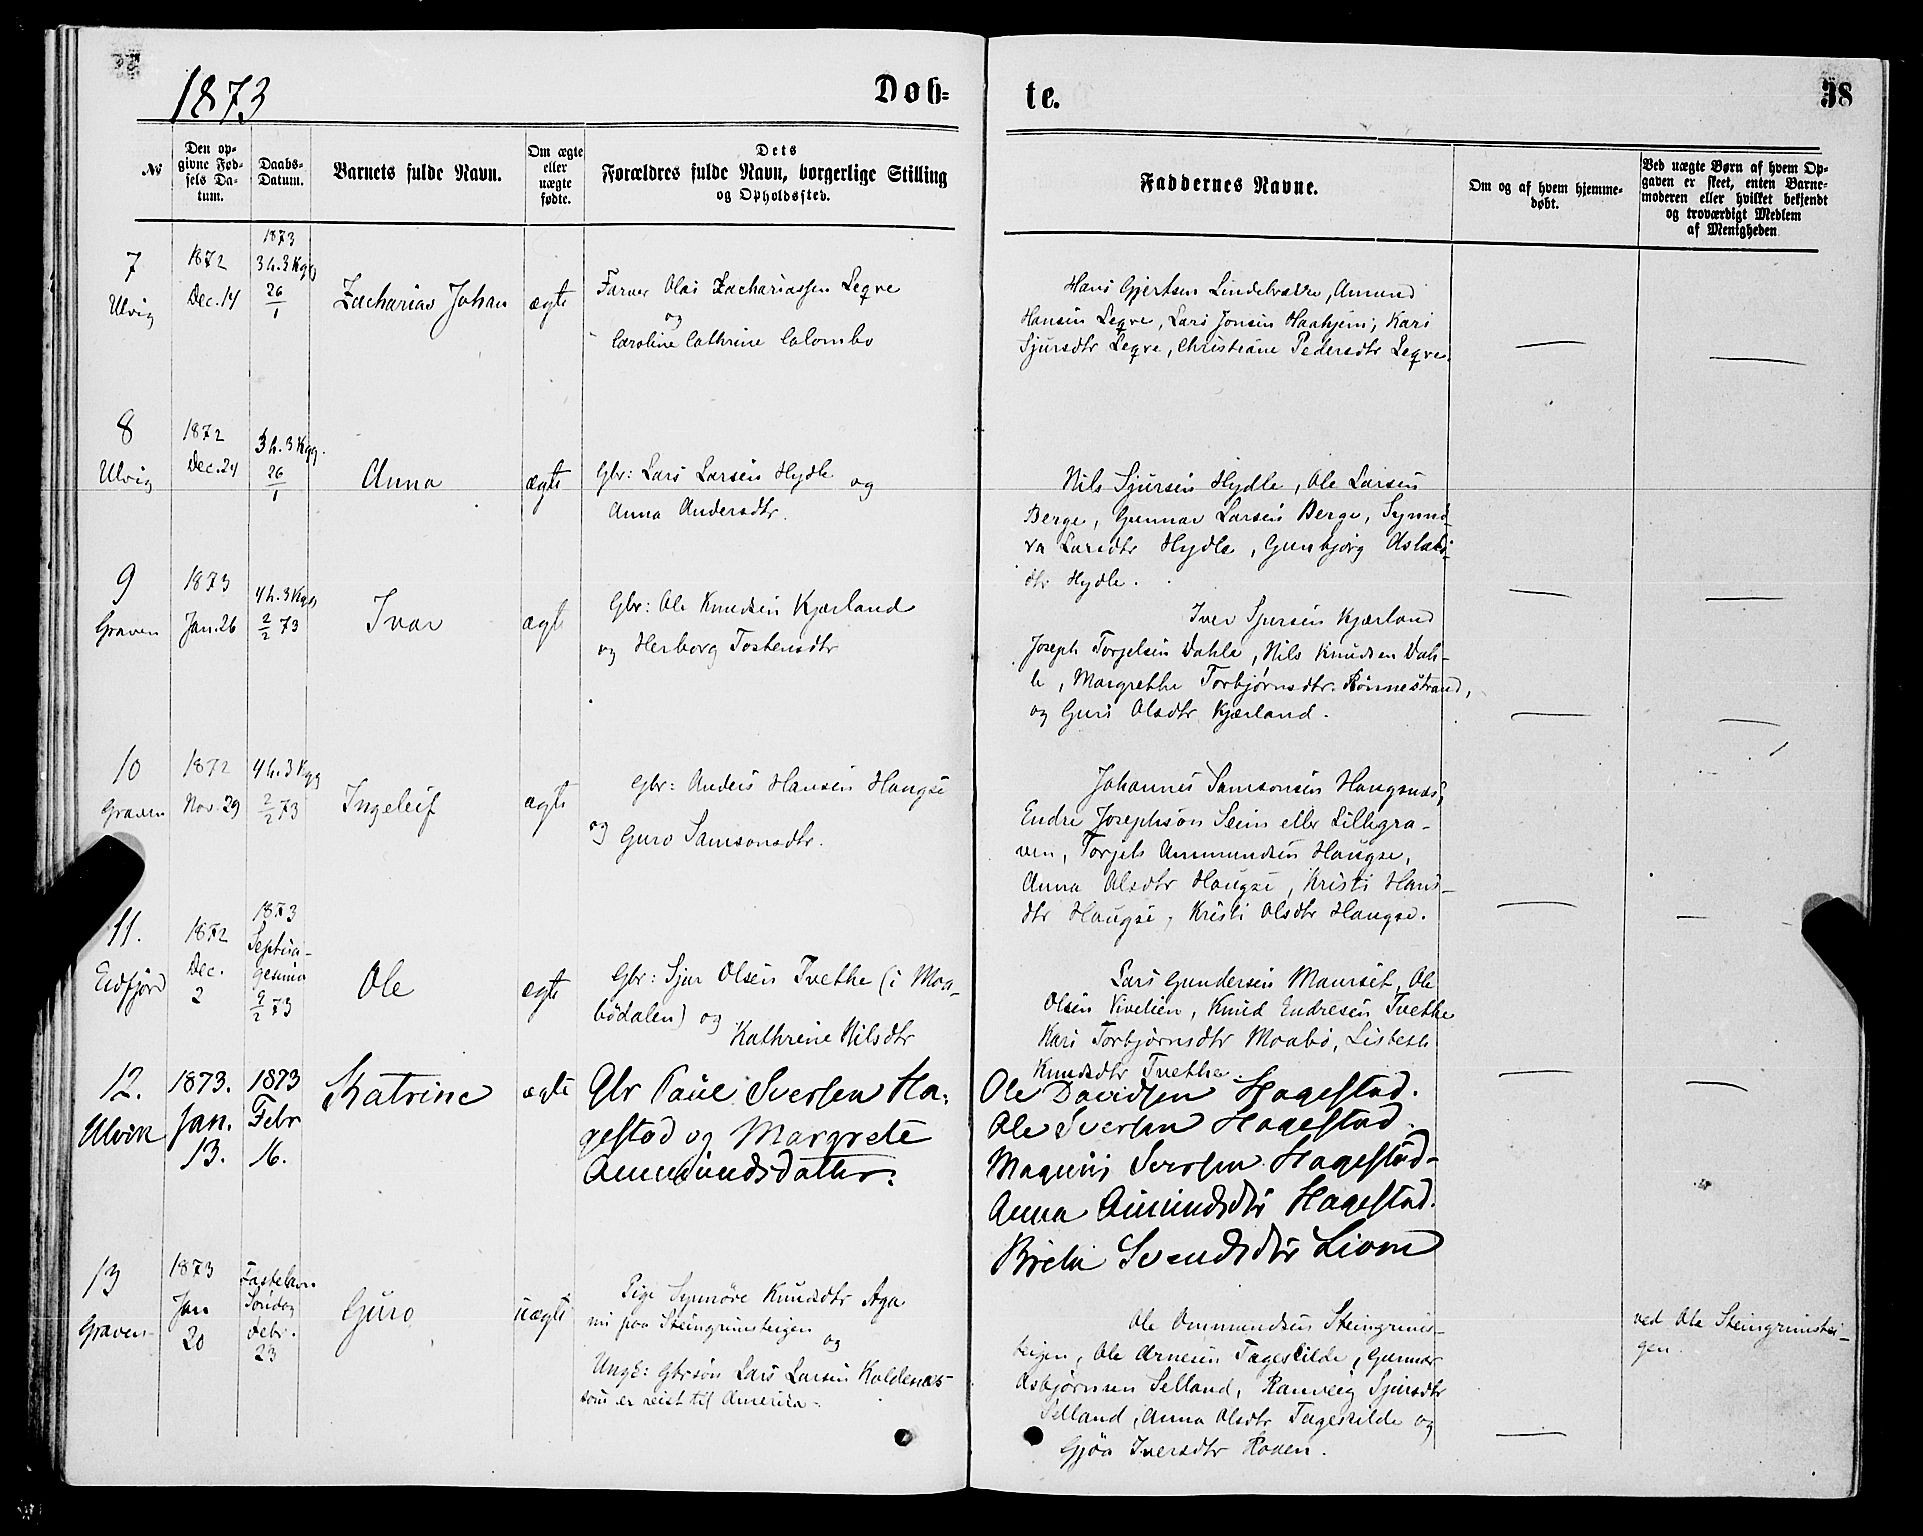 1873
Døb=
te.
38
№
Den op=
givne Fød=
sels Da=
tum.
Daabs=
Datum.
Barnets fulde Navn.
Om ægte
eller
uægte
fødte.
Dets
Forældres fulde Navn, borgerlige Stilling
og Opholdssted.
Faddernes Navne.
Om og af hvem hjemme=
døbt.
Ved uægte Børn af hvem Op=
gaven er skeet, enten Barne=
moderen eller hvilket bekjendt
og troværdigt Medlem
af Menigheden
7
Ulvig
1872
Dec. 14
1873
3 h. 3 Kgg
26
1
Zacharias Johan
ægte
Farver Olai Zachariassen Leqve
og
Caroline Cathrine Colombo
Hans Gjertsen Lindebrække, Amund
Hansen Leqve, Lars Jonsen Haahjem, Kari
Sjursdtr Leqve, Christiane Pedersdtr Leqve.
8
Ulvig
1872
Dec. 24
3 h. 3 Kgg.
26
1
Anna
ægte
Gbr: Lars Larsen Hydle og
Anna Andersdtr.
Nils Sjursen Hydle, Ole Larsen
Berge, Gunnar Larsen Berge, Synnø-
va Larsdtr Hydle, Gunbjørg Aslaks-
dtr Hydle.
9
Graven
1873
Jan. 26
4 h. 3 Kgg
2/2 73
Ivar
ægte
Gbr: Ole Knudsen Kjærland
og Herborg Tostensdtr
Iver Sjursen Kjærland
Joseph Torjelsen Dahle, Nils Knudsen Dah-
le, Margrethe Torbjørnsdtr Rønnestrand,
og Guri Olsdtr Kjærland.
10
Graven
1872
Nov. 29
4 h. 3 Kgg
2/2 73
Ingeleif
ægte
Gbr: Anders Hansen Haugse
og Guro Samsonsdtr.
Johannes Samsonsen Haugsnæs,
Endre Josephson Seim eller Lillegra-
ven, Torjels Ammundsen Haugse,
Anna Olsdtr Haugse, Kristi Hans-
dtr Haugse, Kristi Olsdtr Haugse.
11.
Eidfjord
1872
Dec.
2
1873
Septua-
gesima
9/2 73
Ole
ægte
Gbr: Sjur Olsen Tvethe (i Maa-
bødalen) og
Kathrine Nilsdtr
Lars Gundersen Maurset, Ole
Olsen Vivelien, Knud Endresen Tvethe
Kari Torbjørnsdtr Maabø, Lisbeth
Knudsdtr Tvethe.
12.
Ulvik
1873.
Jan.
13.
1873
Febr
16.
Katrine
ægte
Gbr Paul Iversen Ha-
gestad og Margrete
Ammundsdatter.
Ole Davidsen Hagestad.
Ole Iversen Hagestad.
Magnus Iversen Hagestad-
Anna Amundsdtr Hagestad.
Brita Svendsdtr Lione
13
Graven
1873
Jan
20
Fastelavns
Søndag
Febr.
23
Guro
uægte
Pige Synnøve Knudsdtr Aga
nu paa Steingrimsteigen
og
Ungk: Gbrsøn Lars Larsen Koldenæs
som er reist til Amerika.
Ole Ommundsen Steingrims-
teigen, Ole Arnesen Fageskilde, Gunnar
Asbjørnsen Selland, Ranveig Sjursdtr
Selland, Anna Olsdtr Fageskilde og
Gjøa Iversdtr Haven.
ved Ole Steingrimstei-
gen.